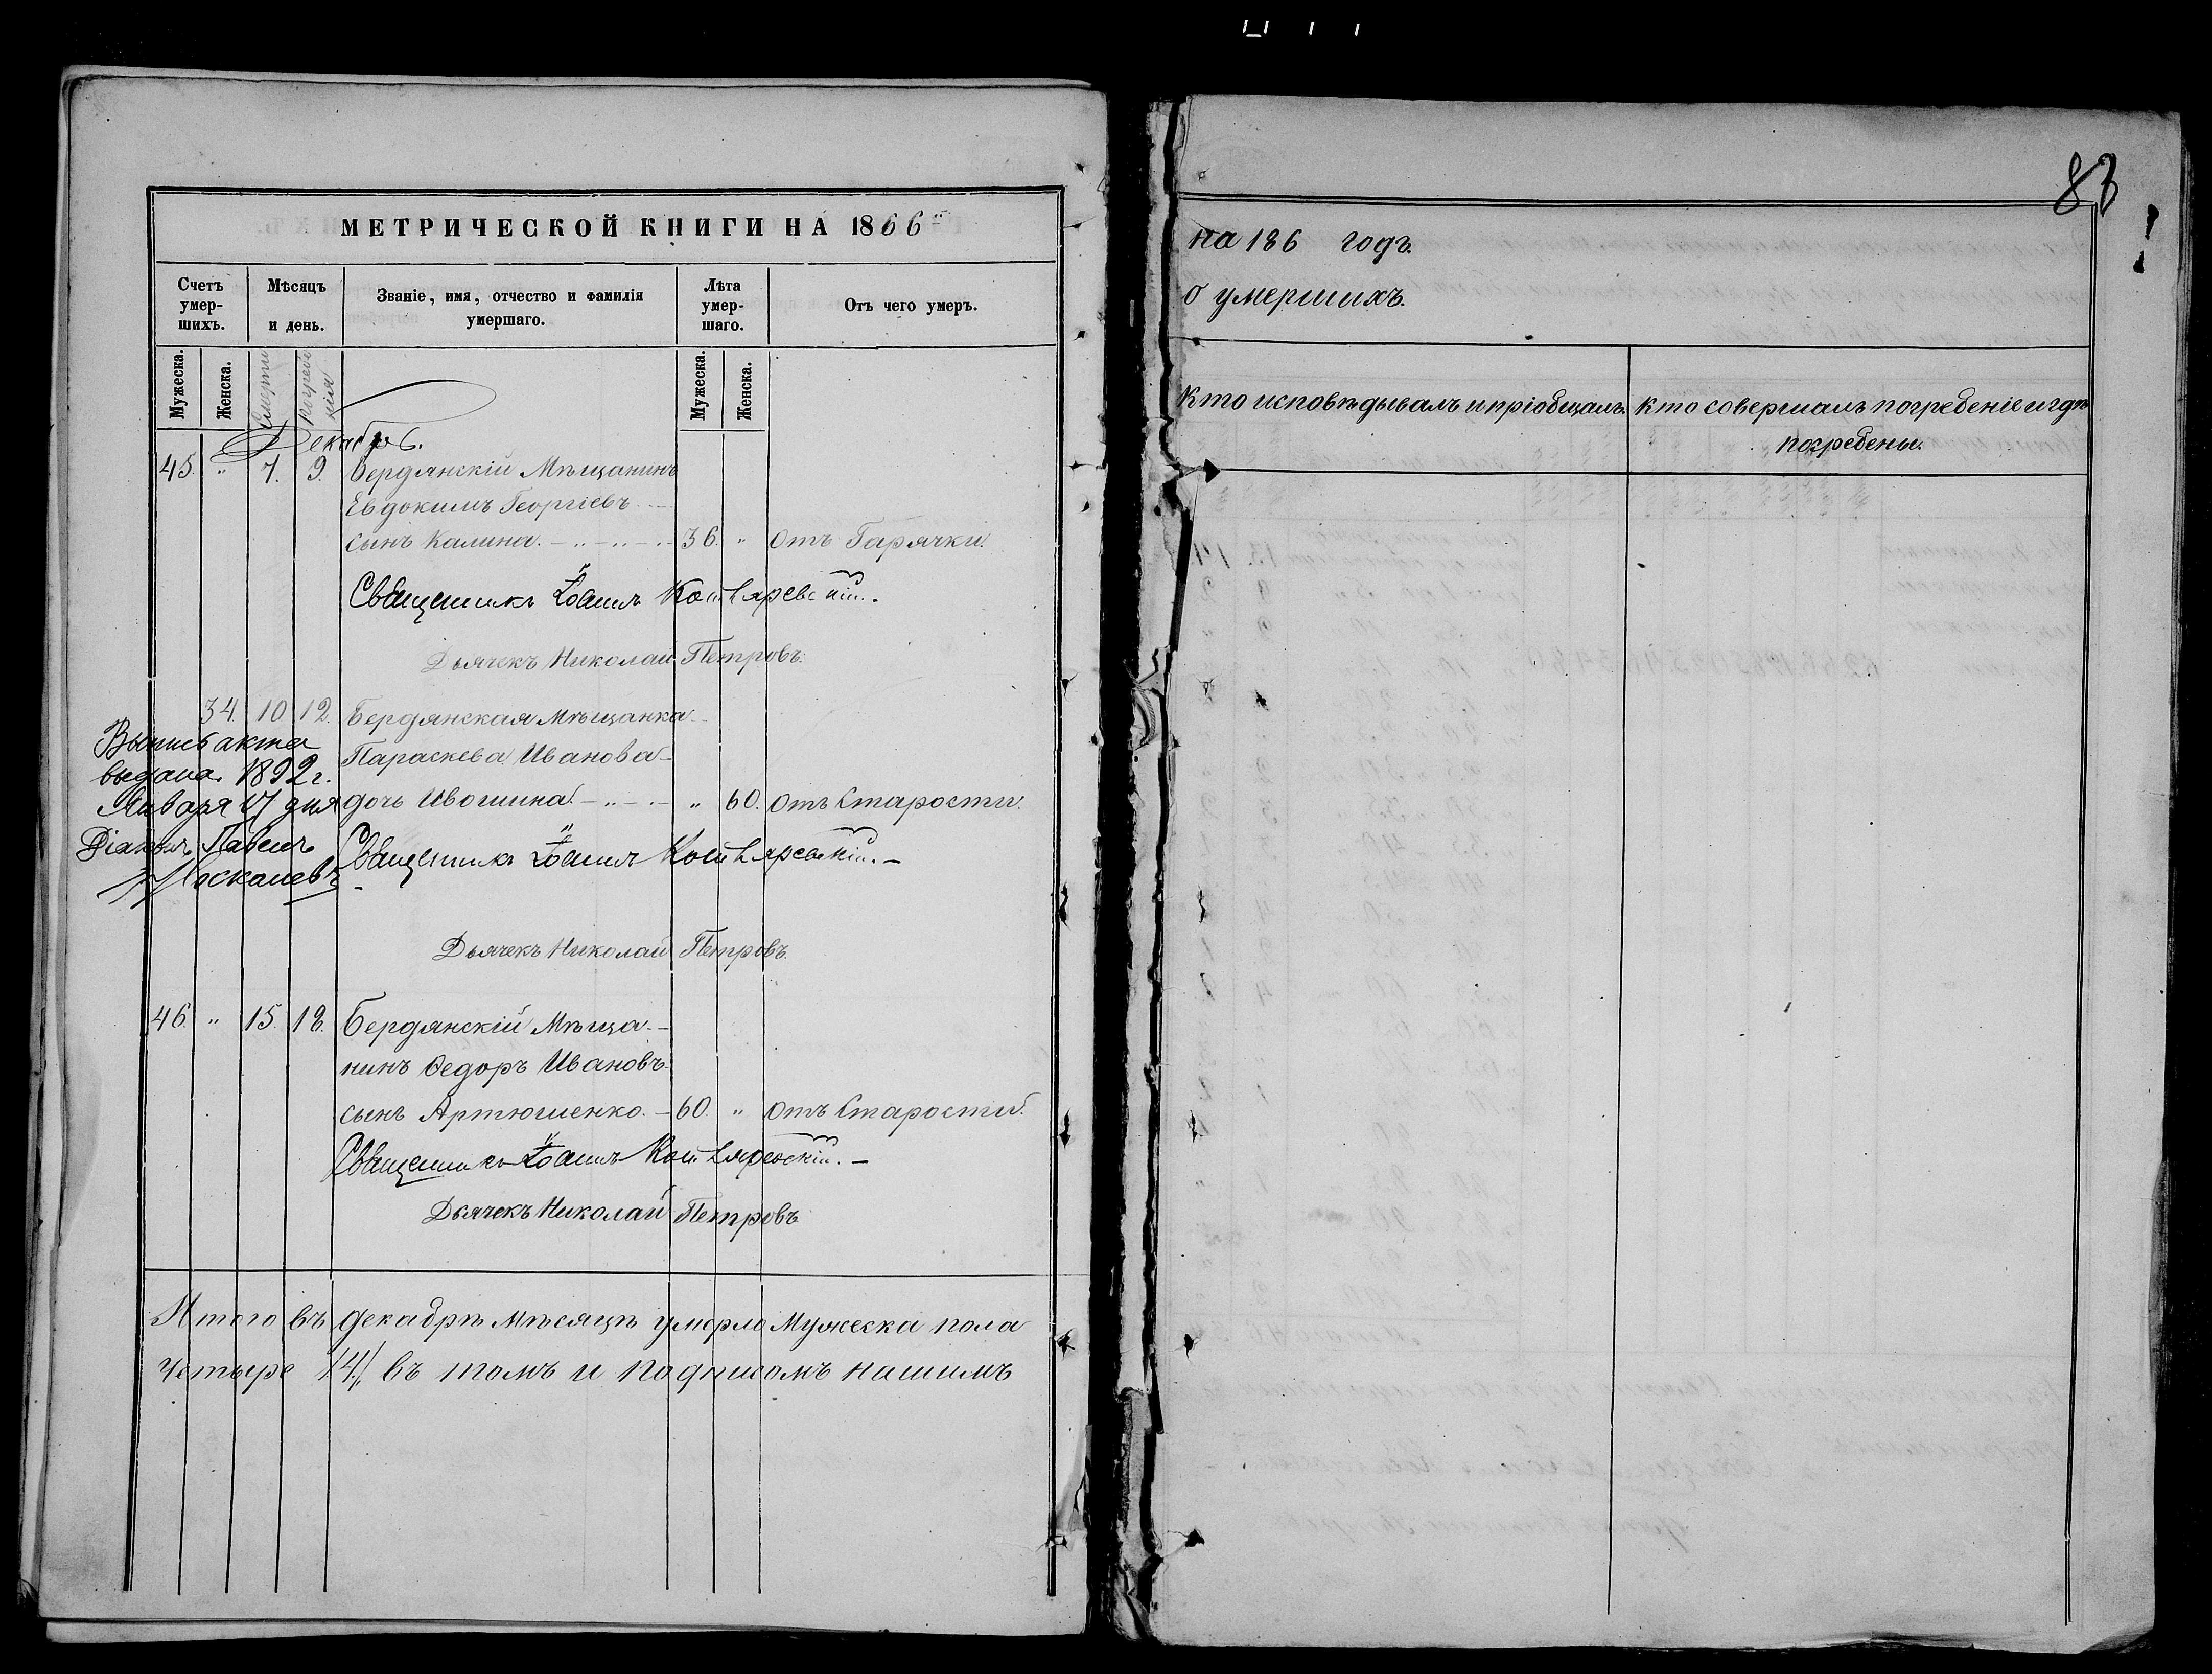 МЕТРИЧЕСКОЙ КНИГИ НА 1866
Счетъ умер-шихъ.
Мѣсяцъ и день.
Званіе, имя, отчество и фамилія умершаго.
Лѣта умер-шаго.
Отъ чего умеръ.
Мужеска.
Женска.
Смерти
погребенія
Мужеска.
Женска.
Декабрь.
45. " 7. 9. Бердянскій Мѣщанинъ
Евдокимъ Георгіевъ
сынъ Калина. 36. " Отъ Гарячки.
Священникъ Іоаннъ Котляревскій.
Дьячекъ Николай Петровъ.
34. 10 12. Бердянская Мѣщанка
Параскева Иванова
дочь Ивошина. " 60. Отъ Старости.
Священникъ Іоаннъ Котляревскій.
Выпись акта
выдана 1892 г.
Января 17 дня
Діаконъ Павелъ
Дьячекъ Николай Петровъ.
46. " 15. 18. Бердянскій Мѣща-
нинъ Ѳедоръ Ивановъ
сынъ Артюшенко. 60. " Отъ Старости.
Священникъ Іоаннъ Котляревскій.
Дьячекъ Николай Петровъ
Итого въ декабрѣ мѣсяцѣ умерло Мужеска пола
четыре /4/ въ томъ и подписомъ нашимъ
83
на 186 годъ.
о умершихъ.
Кто исповѣдывалъ и пріобщалъ.
Кто совершалъ погребеніе и гдѣ
погребены.